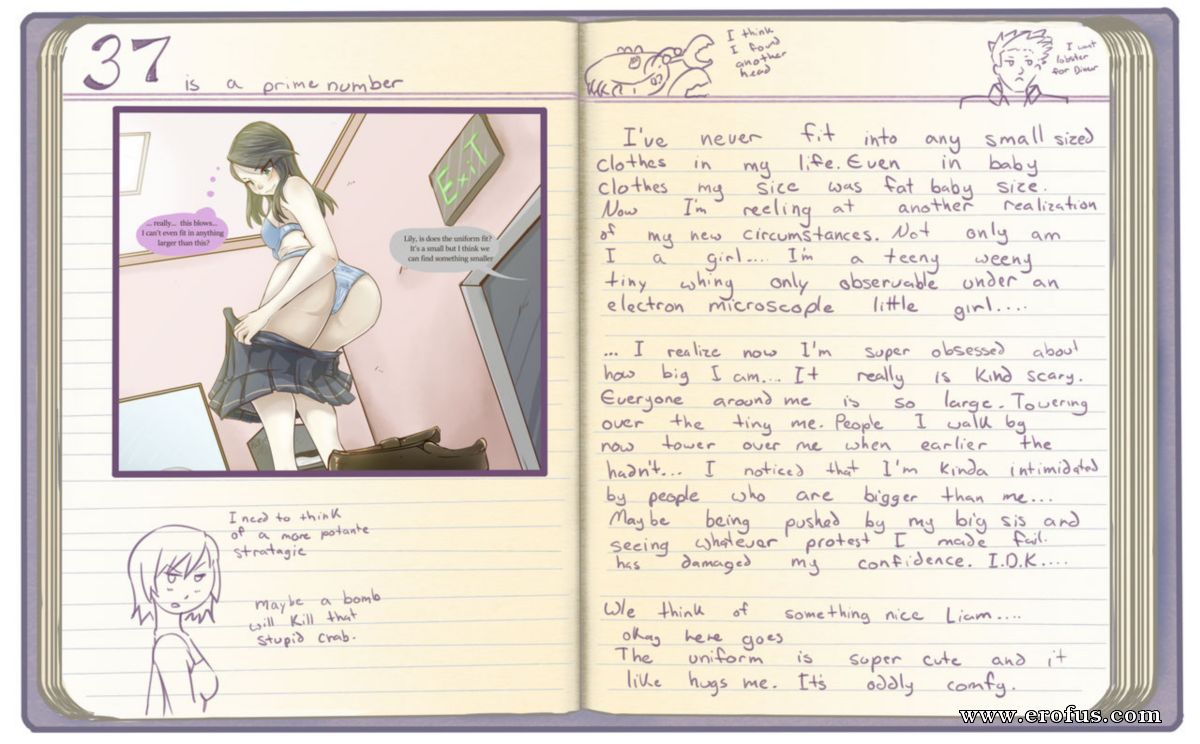 37
is a prime number
... really... this blows...
I can't even fit in anything
larger than this?
EXIT
Lily, is does the uniform fit?
It's a small but I think we
can find something smaller
I need to think
of a more potante
stratagie
maybe a bomb
will kill that
stupid crab.
I think
I found
another
head
I want
lobster
for Diner
I've never fit into any small sized
clothes in my life. Even in baby
clothes my size was fat baby size.
Now I'm reeling at another realization
of my new circumstances. Not only am
I a girl.... I'm a teeny weeny
tiny whing only observable under an
electron microscope little girl....
... I realize now I'm super obsessed about
how big I am... It really is kind scary.
Everyone around me is so large. Towering
over the tiny me. People I walk by
now tower over me when earlier the
hadn't... I noticed that I'm kinda intimidated
by people who are bigger than me...
Maybe being pushed by my big sis and
seeing whatever protest I made fail.
has damaged my confidence. I.D.K....
We think of something nice Liam....
okay here goes
The uniform is super cute and it
like hugs me. It's oddly comfy.
www.erofus.com